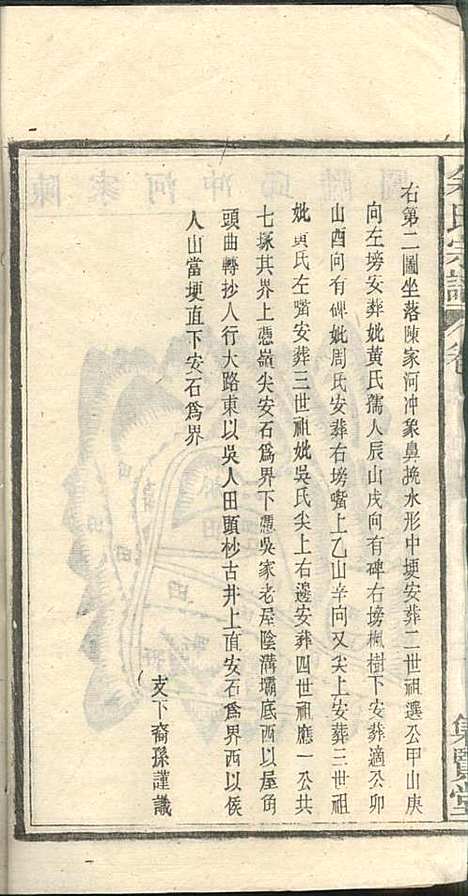 右第二圖坐落陳家河冲象鼻挽水形中埂安葬二世祖選公甲山庚
向左塝安葬妣黃氏孺人辰山戌向有碑右塝楓樹下安葬適公卯
山酉向有碑妣周氏安葬右塝嘴上乙山辛向又尖上安葬三世祖
妣黃氏左嘴安葬三世祖妣吳氏尖上右邊安葬四世祖應一公共
七塚其界上憑嶺尖安石爲界下憑吳家老屋陰溝壩底西以屋角
頭曲轉抄人行大路東以吳人田頭杪古井上頂安石爲界西以侯
人山當埂直下安石爲界
支下裔孫謹識
氏宗譜
集賢堂
陳家河冲邱附圖
田
田